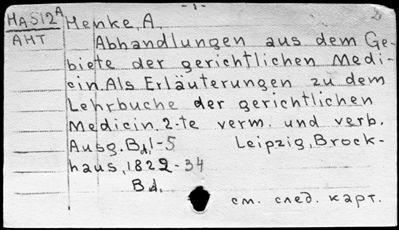 - 1 -
HAS12A Henke, A.
AHT Abhandlungen aus dem Ge-
biete der gerichtlichen Medi-
cin. Als Erläuterungen zu dem
Lehrbuche der gerichtlichen
Medicin. 2-te verm. und verb.
Ausg. Bd. 1-5 Leipzig, Brock-
haus, 1822-34
Bd.
см. след. карт.